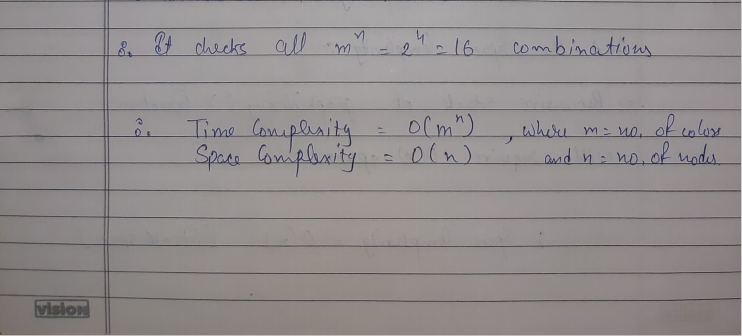 8. It checks all mⁿ = 2⁴ = 16 combinations
∴ Time Complexity = O(mⁿ), where m = no. of colors
Space Complexity = O(n) and n = no. of nodes.
vision